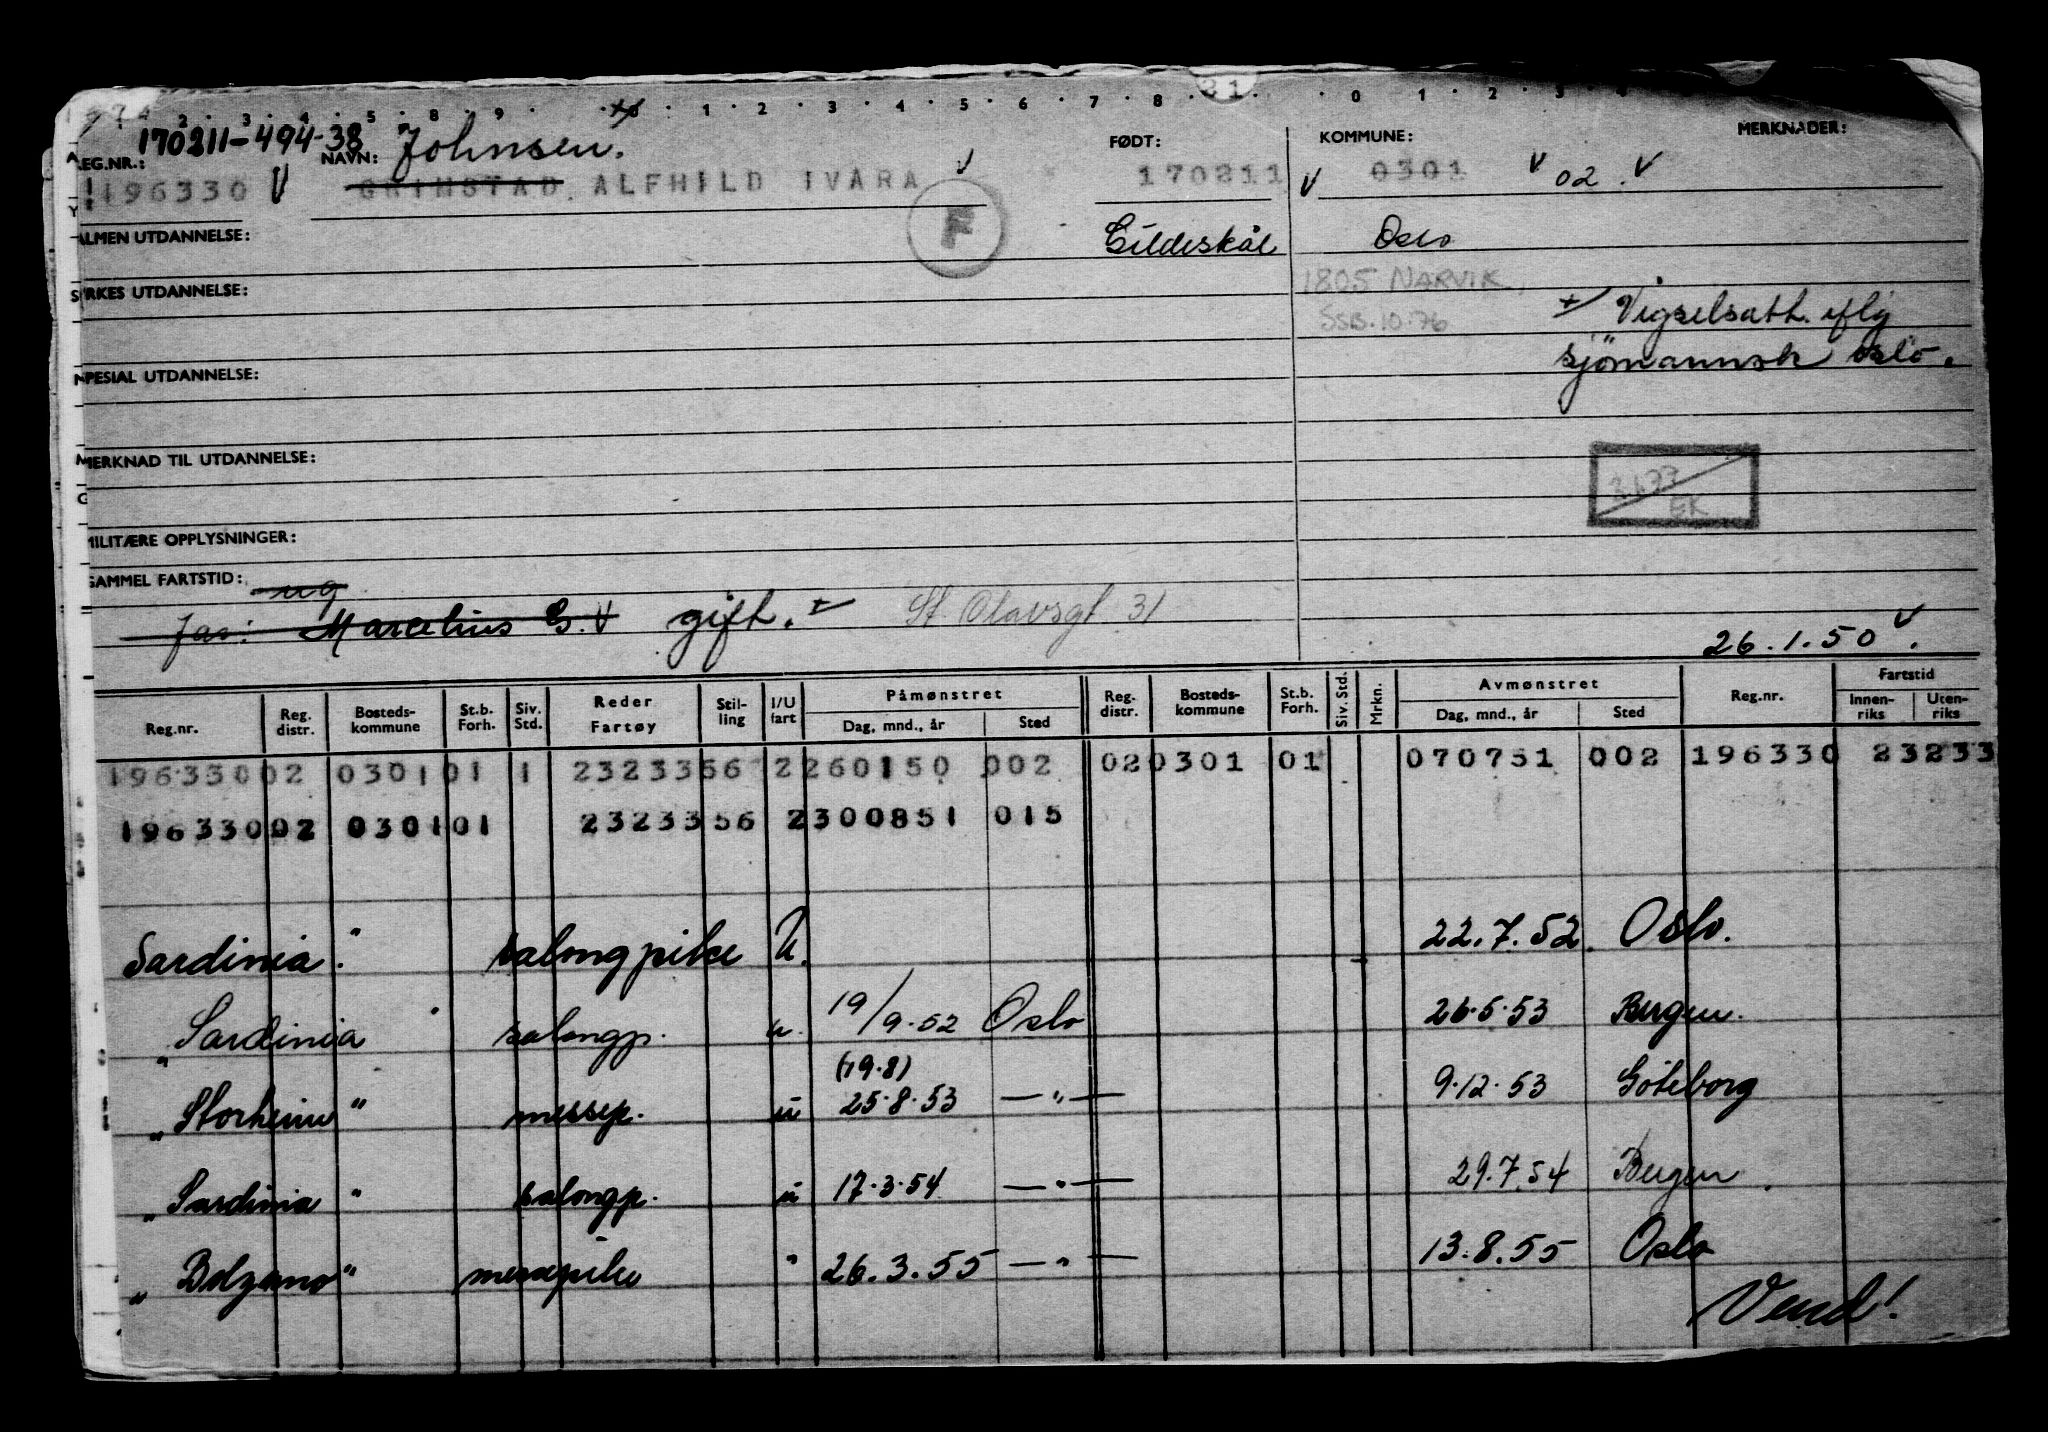 170211-494-38
REG.NR.: NAVN: Johnsen. FØDT: KOMMUNE: MERKNADER:
196330 V GRIMSTAD ALFHILD IVARA V 170211 V 0301 V 02. V
F
ALMEN UTDANNELSE: Gildeskål Oslo
YRKES UTDANNELSE: 1805 NARVIK,
SSB.10.76
Vigselsatt. iflg
sjömannsk Oslo.
SPESIAL UTDANNELSE:
MERKNAD TIL UTDANNELSE:
EK
MILITÆRE OPPLYSNINGER:
SAMMEL FARTSTID: ug
far: Marcelius G. V gift. St Olavsgt 31
26.1.50 V.
Reg.nr. Reg. distr. Bosteds-kommune St.b. Forh. Siv. Std. Reder Fartøy Stil-ling I/U fart Påmønstret Dag, mnd., år Sted Reg-distr. Bosteds-kommune St.b. Forh. Siv. Std. Mrkn. Avmønstret Dag, mnd., år Sted Reg.nr. Fartstid Innen-riks Uten-riks
196330 02 0301 01 1 23233 56 2 260150 002 02 0301 01 070751 002 196330 23233
196330 02 0301 01 23233 56 2 300851 015
Sardinia." salongpike U. 22.7.52. Oslo.
"Sardinia" salongp. u. 19/9.52 Oslo 26.5.53 Bergen.
(19.8)
"Storheim" messep. u 25.8.53 —"— 9.12.53 Göteborg
"Sardinia" salongp. u 17.3.54 —"— 29.7.54 Bergen.
"Bolzano" messepike " 26.3.55 —"— 13.8.55 Oslo
Vend!